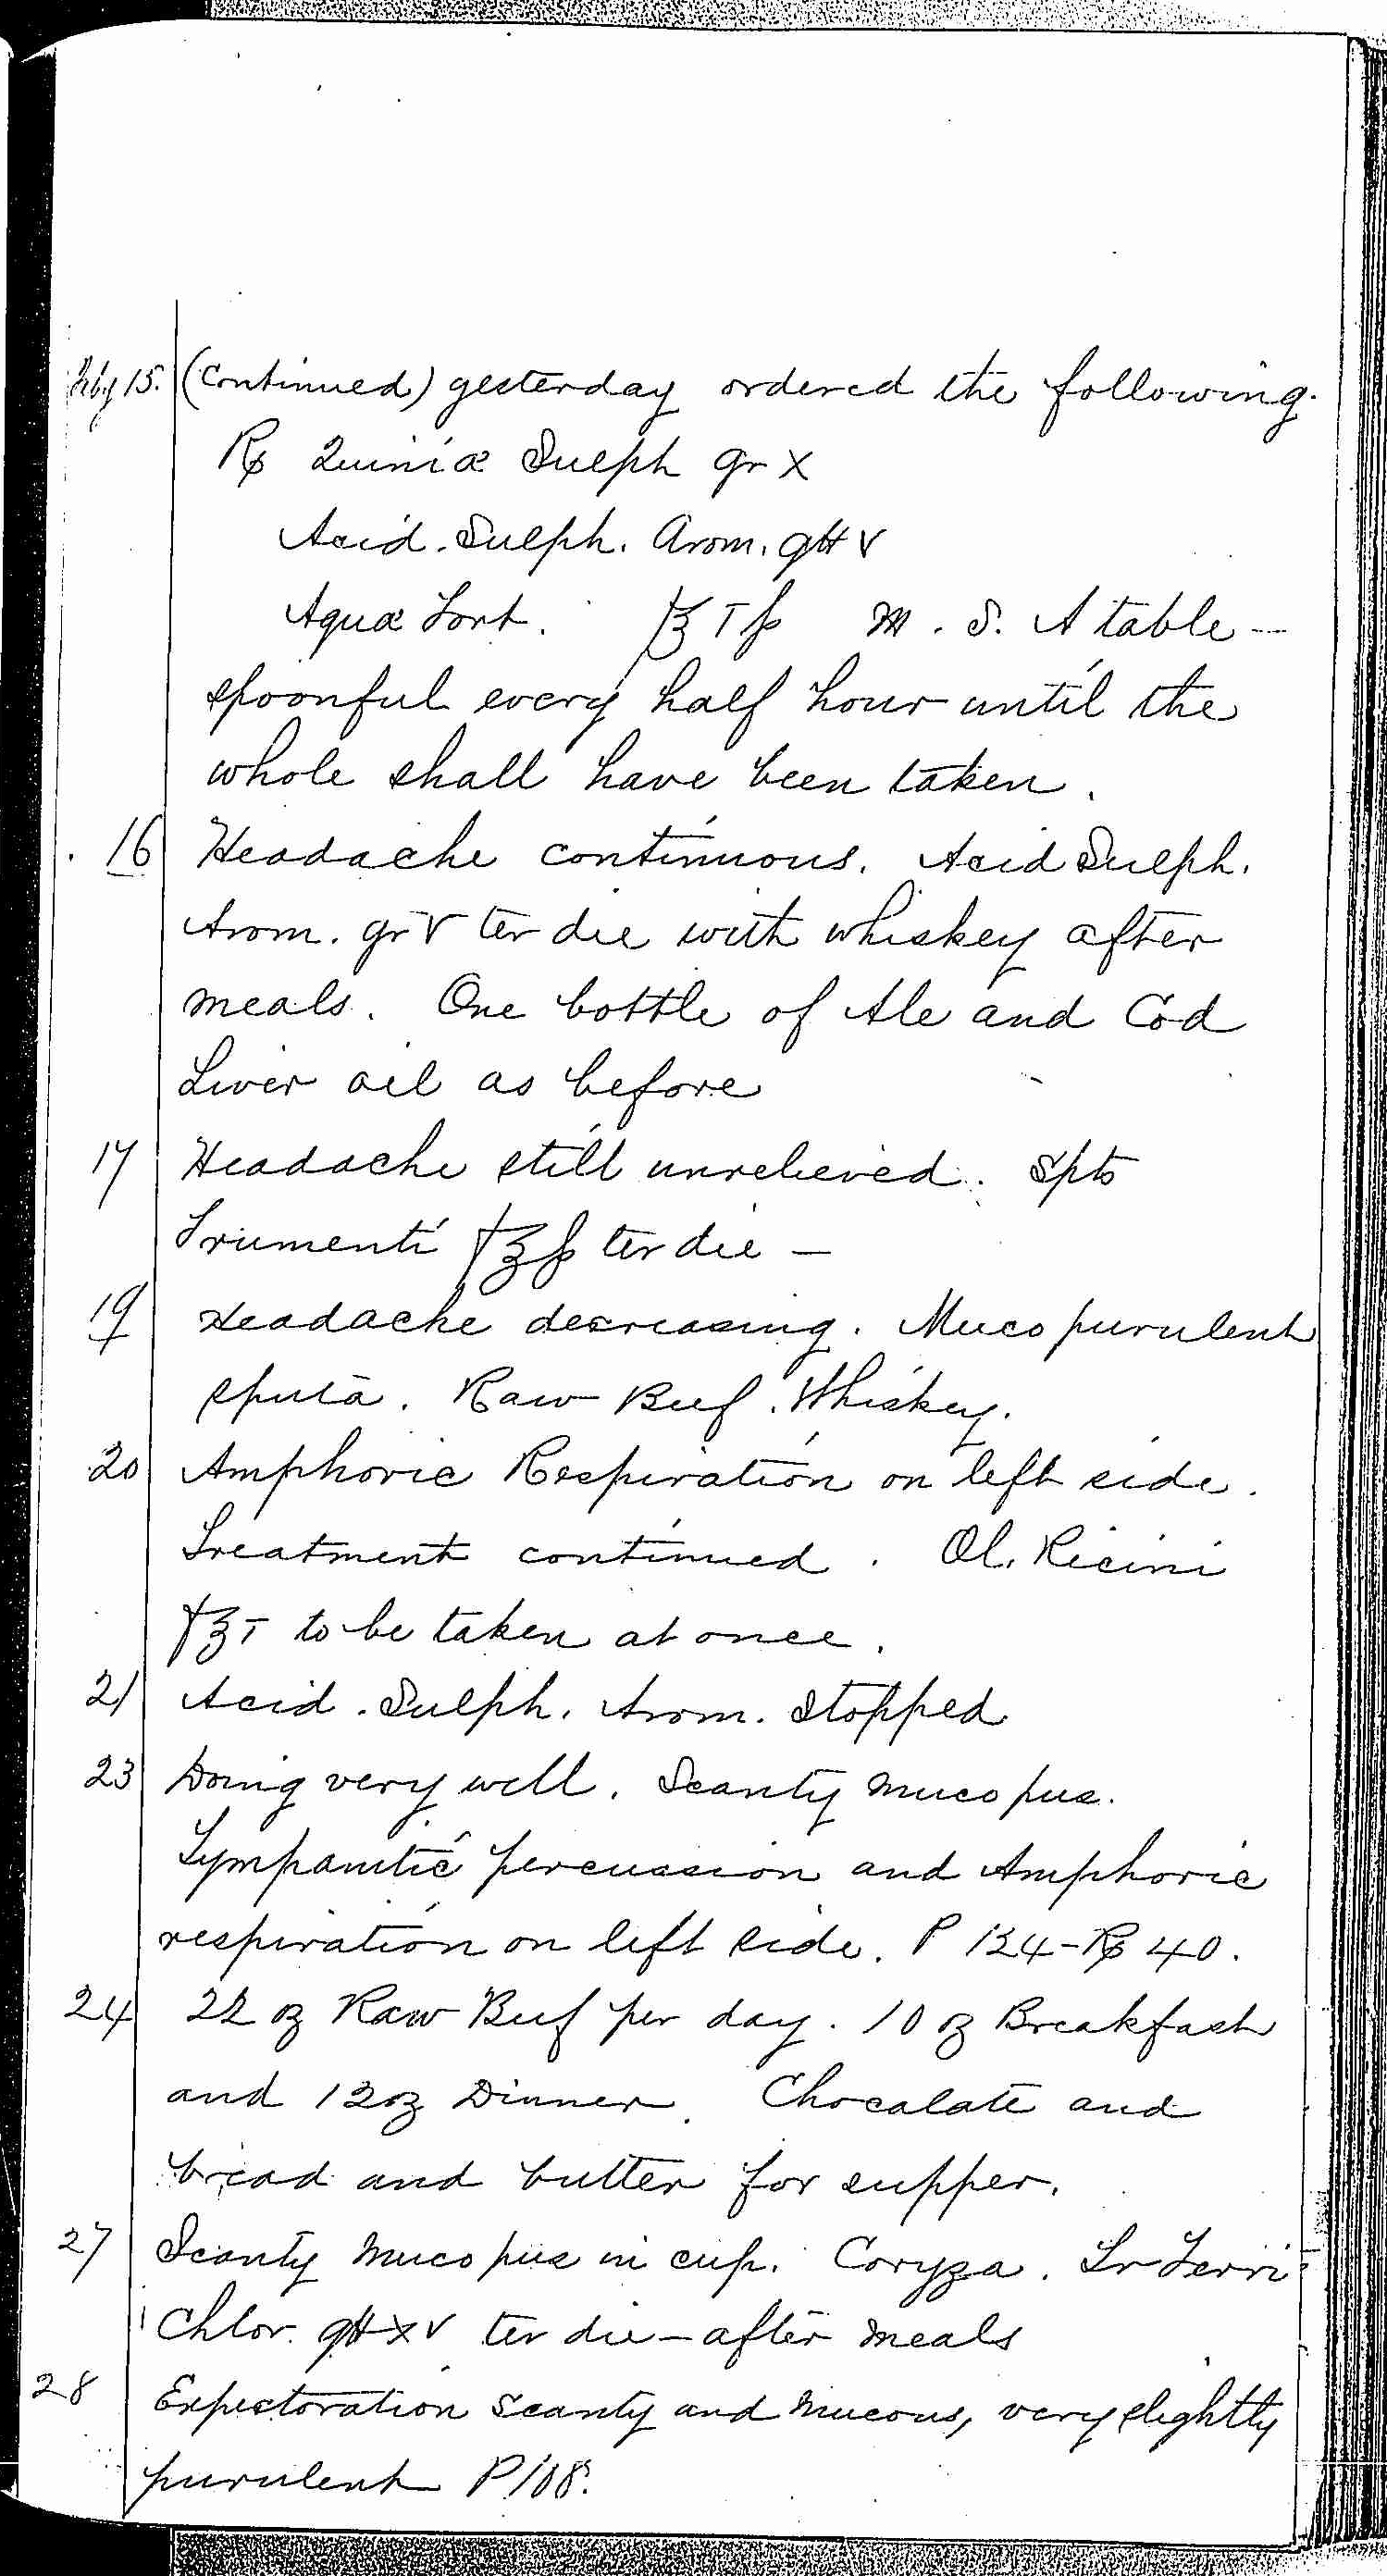 Feby 15. (Continued) yesterday ordered the following.
℞ Quiniæ Sulph gr X
Acid. Sulph. Arom. gtt V
Aquæ Font. f℥ Tfs M. S. A table-
spoonful every half hour until the
whole shall have been taken.
16 Headache continuous. Acid Sulph.
Arom. gr V ter die with whiskey after
meals. One bottle of Ale and Cod
Liver oil as before
17 Headache still unrelieved. Spts
Frumenti f℥ fs ter die —
19 Headache decreasing. Muco purulent
sputa. Raw Beef. Whiskey.
20 Amphoric Respiration on left side.
Treatment continued. Ol. Ricini
f℥ T to be taken at once.
21 Acid. Sulph. Arom. stopped
23 Doing very well. Scanty muco pus.
Tympanitic percussion and Amphoric
respiration on left side. P 124 - R 40.
24 22 oz Raw Beef per day. 10 oz Breakfast
and 12 oz Dinner. Chocalate and
bread and butter for supper.
27 Scanty Muco pus in cup. Coryza. Tr Ferri
Chlor. gtt XV ter die - after meals
28 Expectoration scanty and mucous, very slightly
purulent P 108.